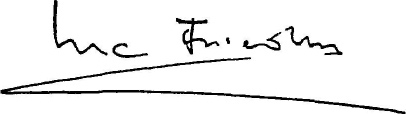 Luc Frieden